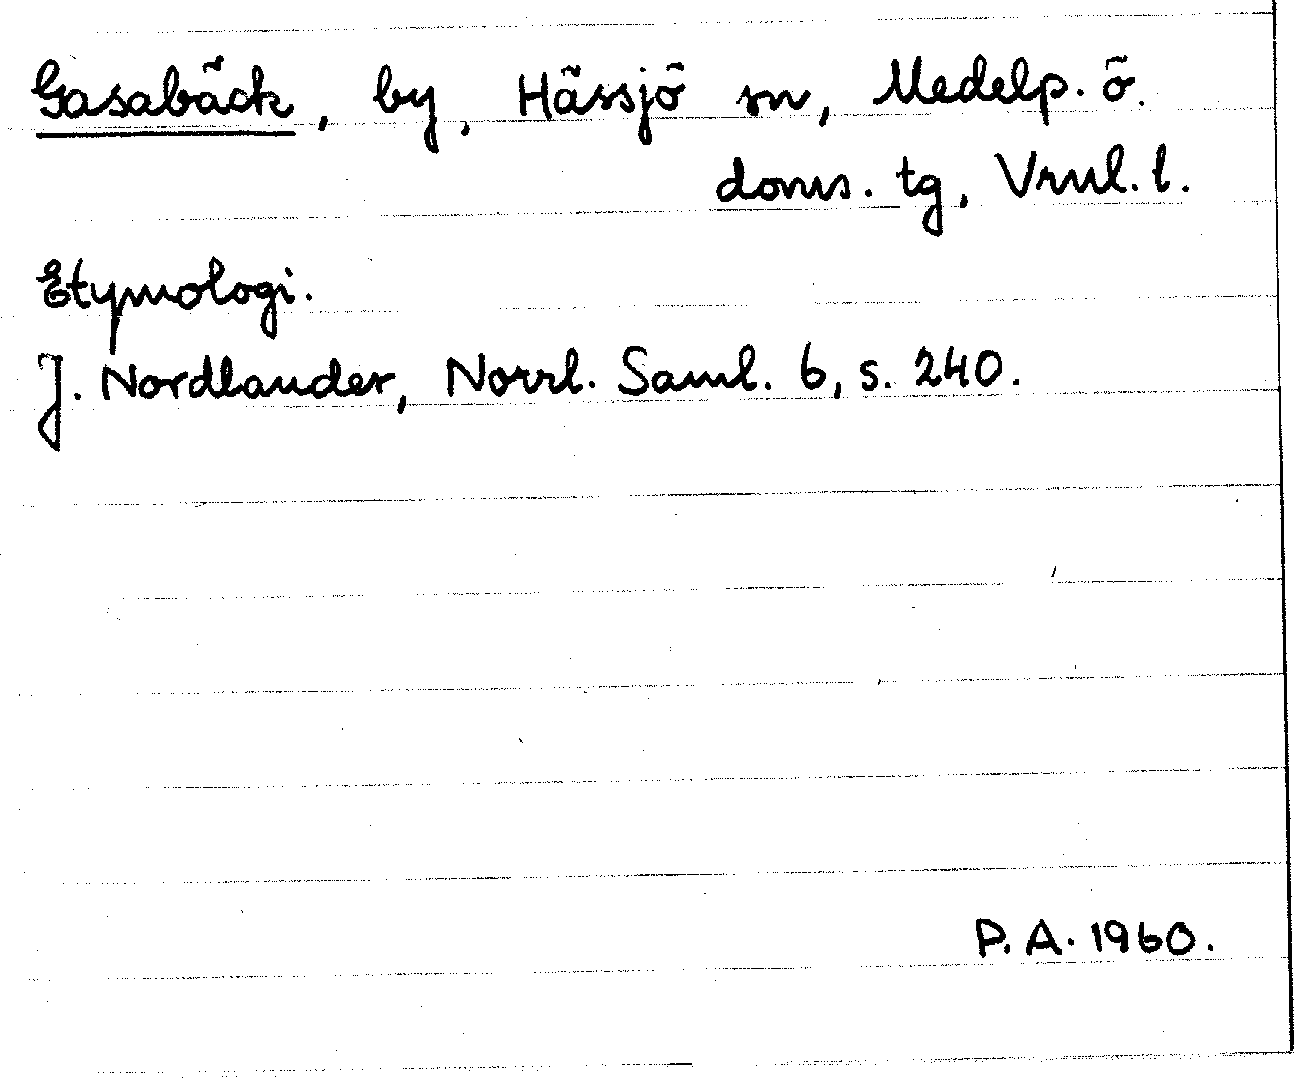 Gasabäck, by, Hässjö sn, Medelp. ö.
doms. tg, Vrnl. l.
Etymologi.
J. Nordlander, Norrl. Saml. 6, s. 240.
P. A. 1960.